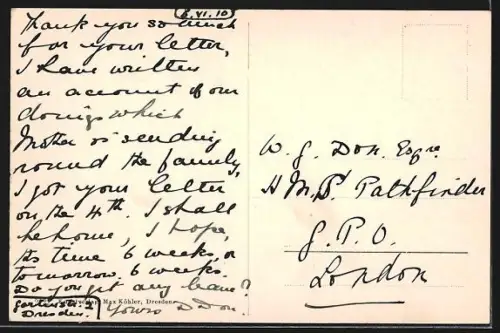 (6.VI.10)
Thank you so much
for your letter,
I have written
an account of our
doings which
Mother is sending
round the family,
I got your letter
on the 4th. I shall
be home, I hope,
its time 6 weeks, or
tomorrow 6 weeks.
Do you get any leave?
Max Köhler, Dresden
Dresden.
Yours D Don.
W. G. Don. Esqre.
H M S Pathfinder
G. P. O.
London